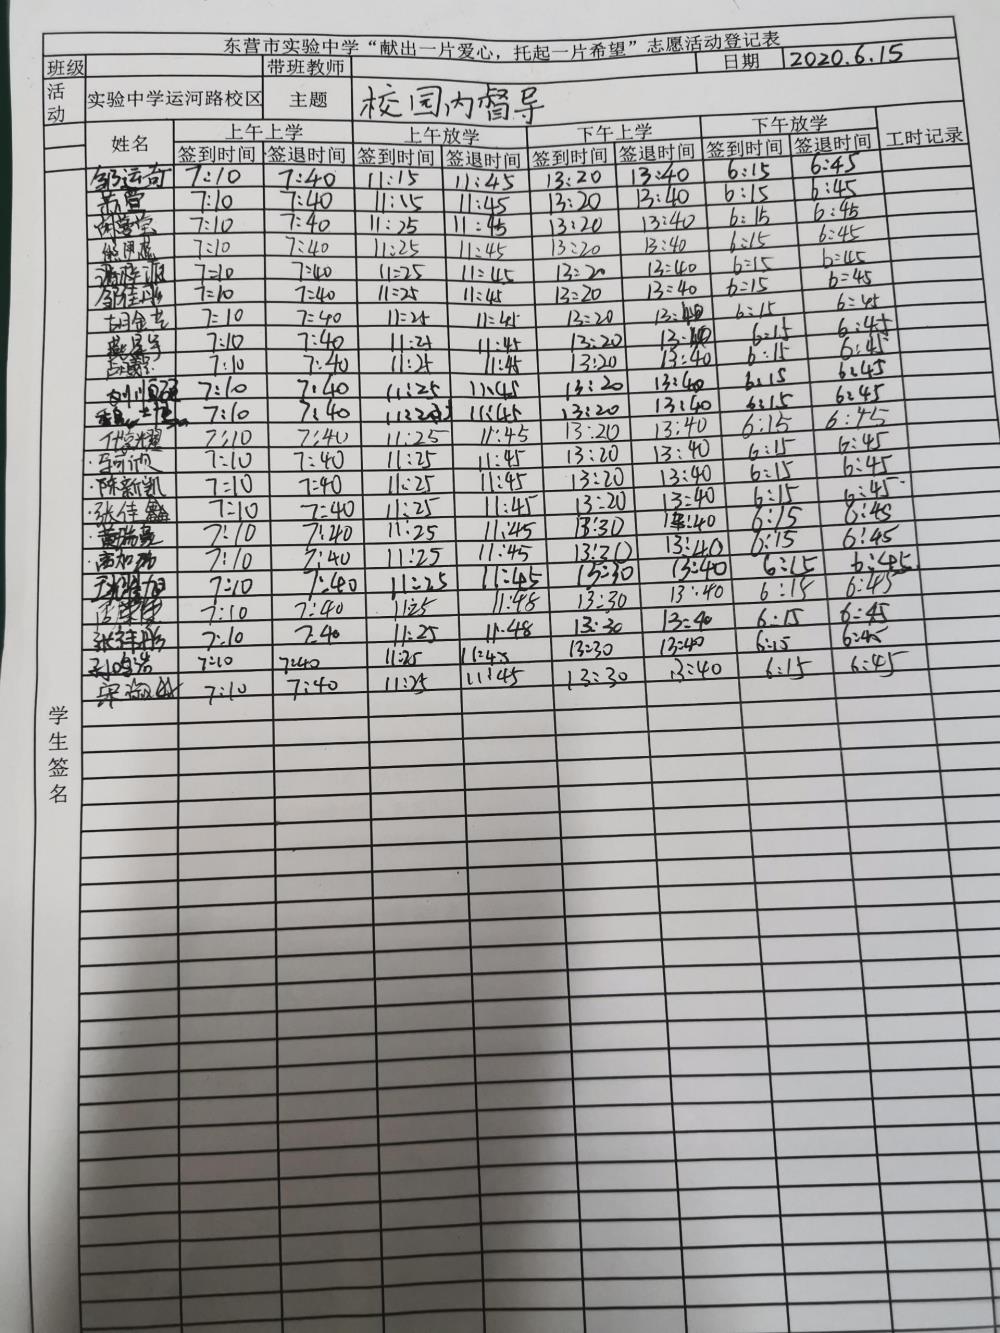 东营市实验中学“献出一片爱心，托起一片希望”志愿活动登记表
班级 带班教师 日期 2020.6.15
活动 实验中学运河路校区 主题 校园内督导
姓名 上午上学 上午放学 下午上学 下午放学 工时记录
签到时间 签退时间 签到时间 签退时间 签到时间 签退时间 签到时间 签退时间
邹运奇 7:10 7:40 11:15 11:45 13:20 13:40 6:15 6:45
7:10 7:40 11:15 11:45 13:20 13:40 6:15 6:45
7:10 7:40 11:25 11:45 13:20 13:40 6:15 6:45
7:10 7:40 11:25 11:45 13:20 13:40 6:15 6:45
7:10 7:40 11:25 11:45 13:20 13:40 6:15 6:45
7:10 7:40 11:25 11:45 13:20 13:40 6:15 6:45
7:10 7:40 11:25 11:45 13:20 13:40 6:15 6:45
7:10 7:40 11:25 11:45 13:20 13:40 6:15 6:45
7:10 7:40 11:25 11:45 13:20 13:40 6:15 6:45
7:10 7:40 11:25 11:45 13:20 13:40 6:15 6:45
7:10 7:40 11:45 13:20 13:40 6:15 6:45
7:10 7:40 11:25 11:45 13:20 13:40 6:15 6:45
7:10 7:40 11:25 11:45 13:20 13:40 6:15 6:45
陈新凯 7:10 7:40 11:25 11:45 13:20 13:40 6:15 6:45
张佳鑫 7:10 7:40 11:25 11:45 13:20 13:40 6:15 6:45
7:10 7:40 11:25 11:45 13:30 13:40 6:15 6:45
7:10 7:40 11:25 11:45 13:30 13:40 6:15 6:45
7:10 7:40 11:25 11:45 13:30 13:40 6:15 6:45
7:10 7:40 11:25 11:48 13:30 13:40 6:15 6:45
7:10 7:40 11:25 11:48 13:30 13:40 6:15 6:45
7:10 7:40 11:25 11:45 13:30 13:40 6:15 6:45
7:10 7:40 11:25 11:45 13:30 13:40 6:15 6:45
学生签名